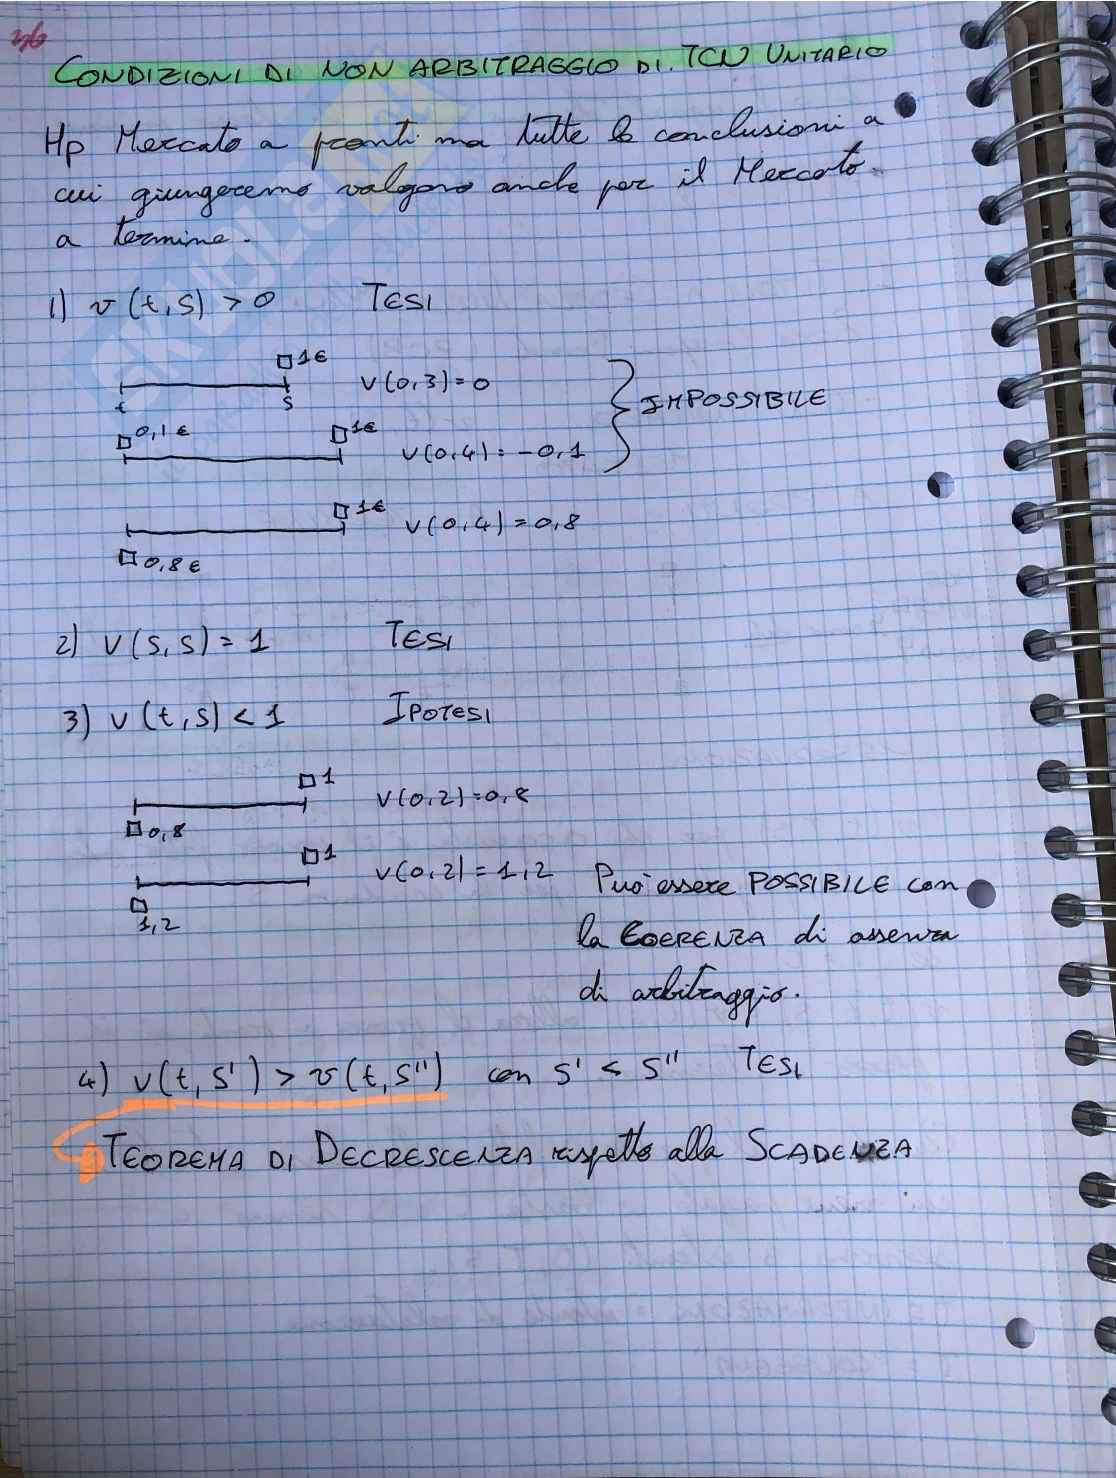 26
CONDIZIONI DI NON ARBITRAGGIO DI TCN UNITARIO
Hp Mercato a pronti ma tutte le conclusioni a
cui giungeremo valgono anche per il Mercato
a termine.
1) v(t,s) > 0 TESI
1€
t s v(0,3)=0
0,1€ 1€ v(0,4)=-0,1
IMPOSSIBILE
1€ v(0,4)=0,8
0,8€
2) v(s,s)=1 TESI
3) v(t,s)<1 IPOTESI
1
v(0,2)=0,8
0,8
1
v(0,2)=1,2 Può essere POSSIBILE con
1,2
la COERENZA di assenza
di arbitraggio.
4) v(t,s') > v(t,s'') con s' < s'' TESI
TEOREMA DI DECRESCENZA rispetto alla SCADENZA